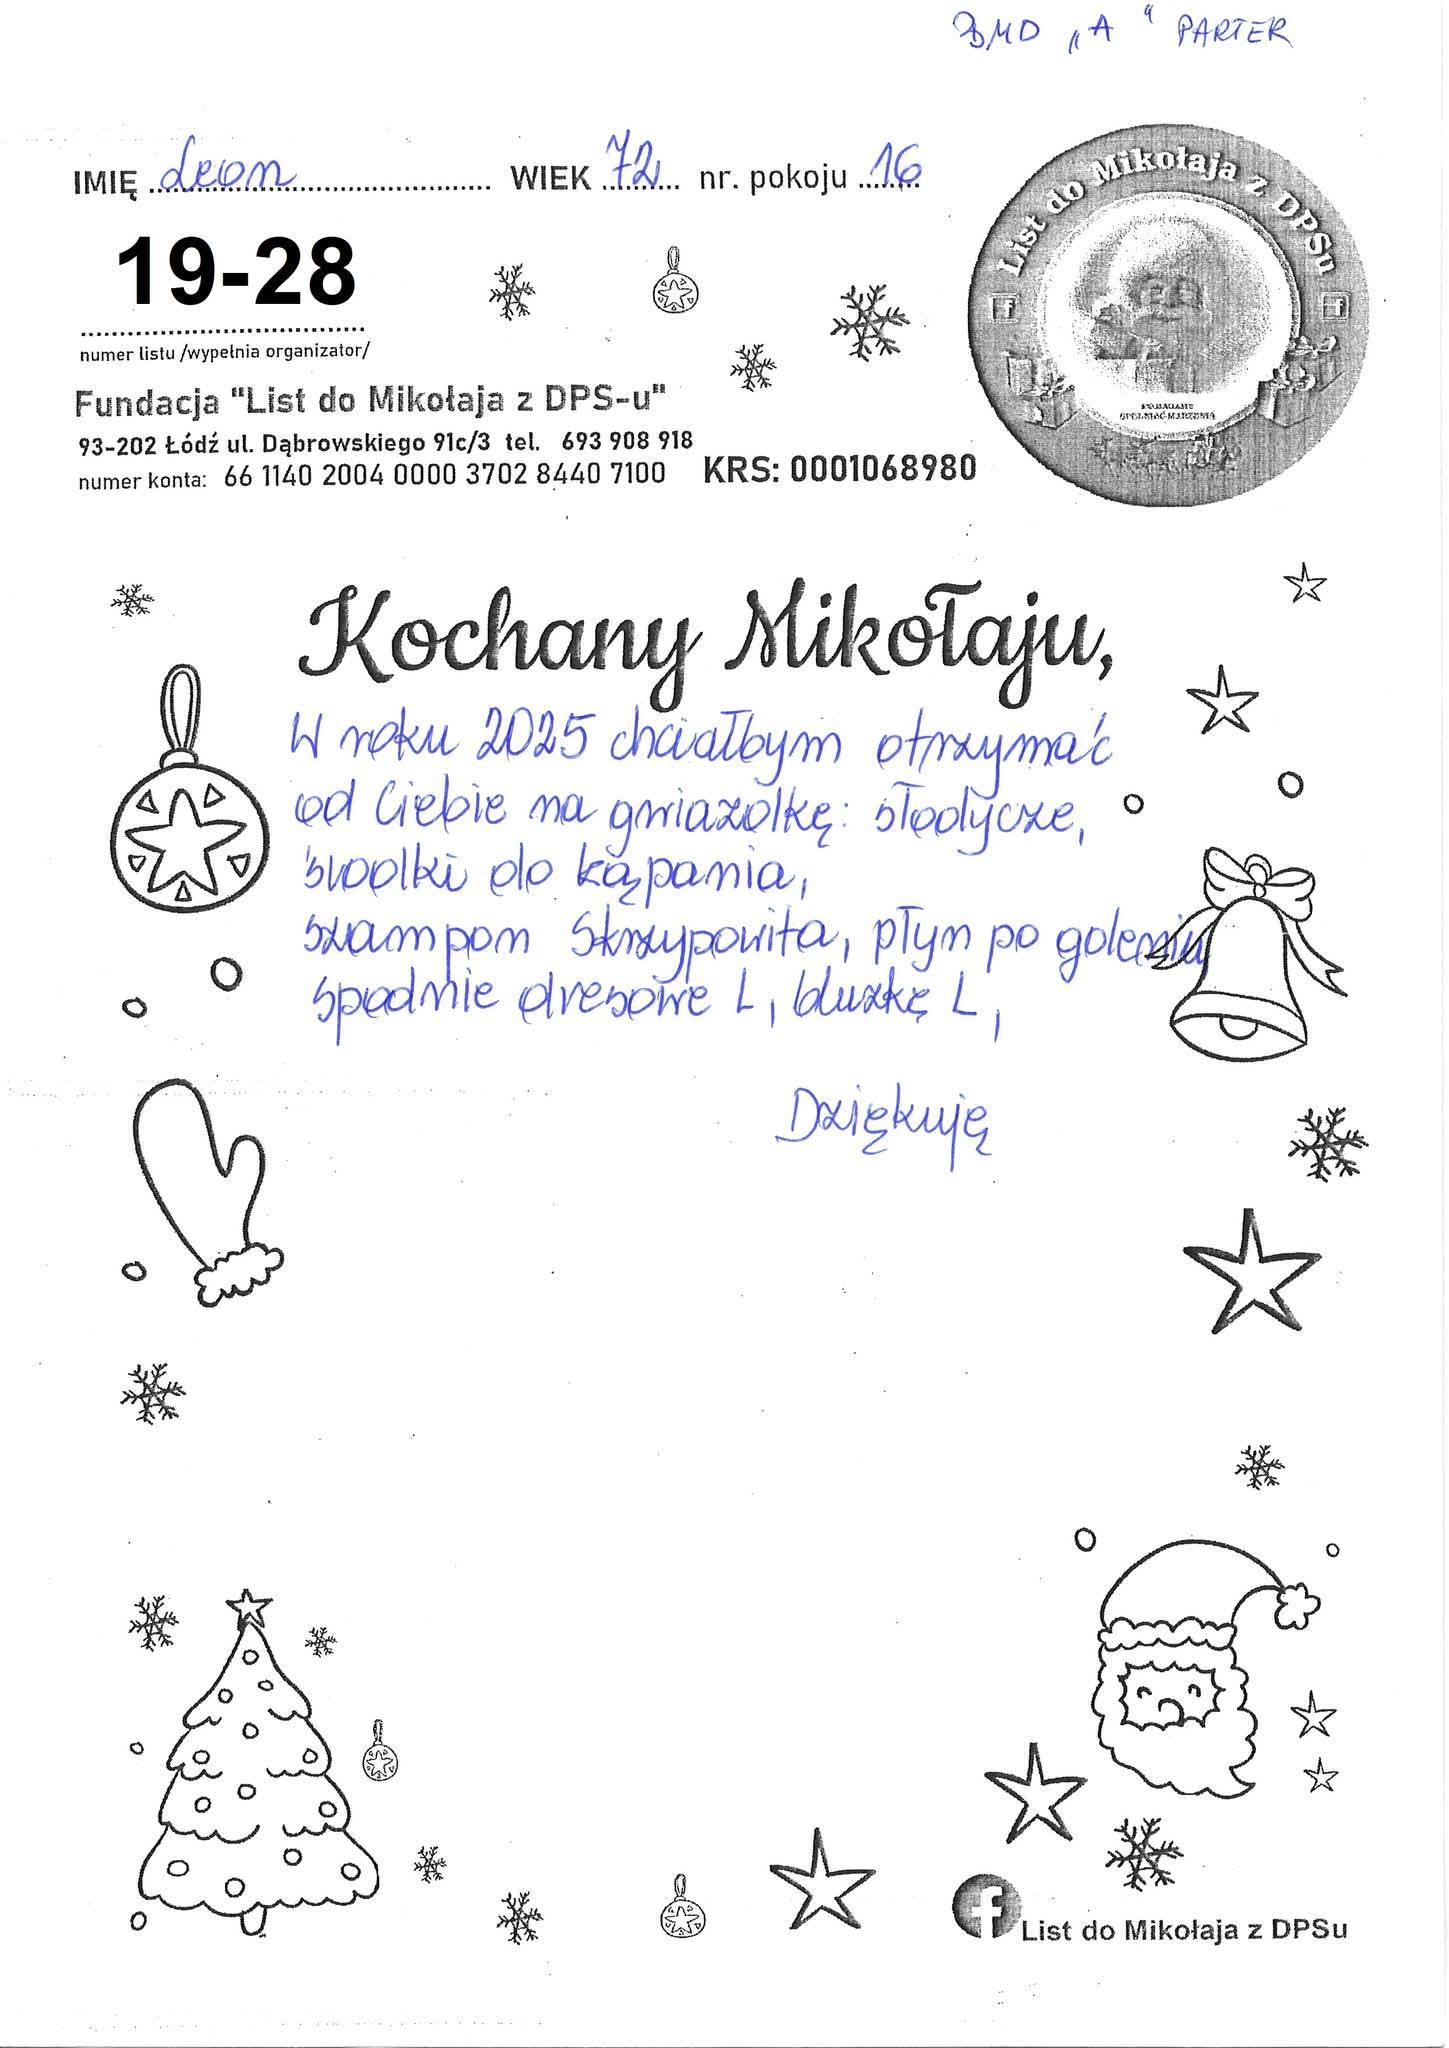 BMD „A" PARTER
IMIĘ Leon WIEK 72 nr. pokoju 16
19-28
numer listu /wypełnia organizator/
Fundacja "List do Mikołaja z DPS-u"
93-202 Łódź ul. Dąbrowskiego 91c/3 tel. 693 908 918
numer konta: 66 1140 2004 0000 3702 8440 7100 KRS: 0001068980
List do Mikołaja z DPSu
POMAGAMY
SPEŁNIAĆ MARZENIA
Kochany Mikołaju,
W roku 2025 chciałbym otrzymać
od Ciebie na gwiazdkę: słodycze,
środki do kąpania,
szampon Skrzypovita, płyn po goleniu
spodnie dresowe L, bluzkę L,
Dziękuję
List do Mikołaja z DPSu